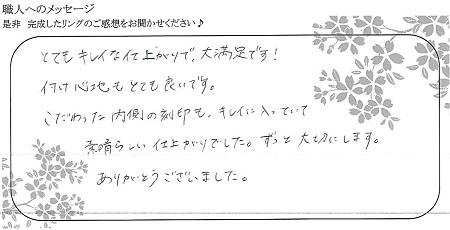 職人へのメッセージ
是非 完成したリングのご感想をお聞かせください♪
とてもキレイな仕上がりで、大満足です!
付け心地もとても良いです。
こだわった内側の刻印も、キレイに入っていて
素晴らしい仕上がりでした。ずっと大切にします。
ありがとうございました。